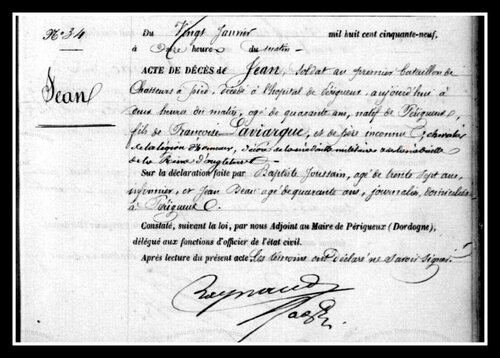 N° 34
Jean
Du Vingt Janvier mil huit cent cinquante-neuf,
à onze heures du matin
ACTE DE DÉCÈS de Jean, soldat au premier bataillon de
Chasseurs à pied, décédé à l'hopital de Périgueux, aujourd'hui à
deux heures du matin, agé de quarante ans, natif de Périgueux,
fils de Françoise Lavergne, et de père inconnu; chevalier
de la légion d'honneur, décoré de la médaille militaire et de la médaille
de la Reine d'angleterre
Sur la déclaration faite par Baptiste Joussain, agé de trente sept ans,
et Jean agé de quarante ans, journalier, domiciliés
à Périgueux.
Constaté, suivant la loi, par nous Adjoint au Maire de Périgueux (Dordogne),
délégué aux fonctions d'officier de l'état civil.
Après lecture du présent acte, les témoins ont déclaré ne savoir signer.